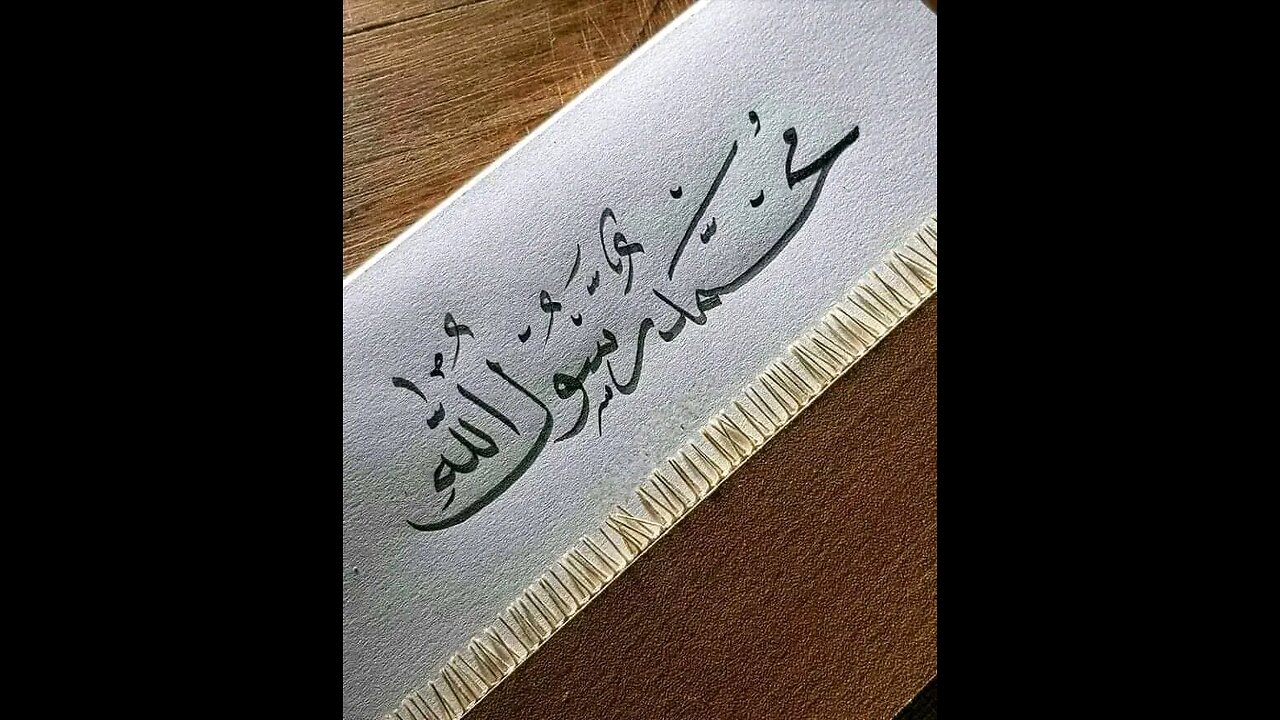 مُحَمَّدٌ رَّسُولُ اللّٰهِ